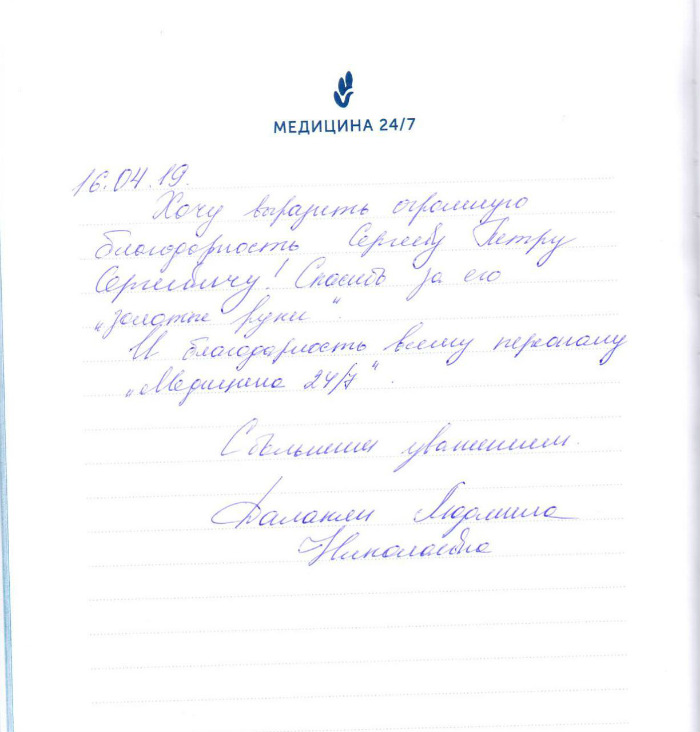 МЕДИЦИНА 24/7
16.04.19.
Хочу выразить огромную
благодарность Сергееву Петру
Сергеевичу! Спасибо за его
„золотые руки“.
И благодарность всему персоналу
„Медицина 24/7“.
С большим уважением.
Далакян Людмила
Николаевна